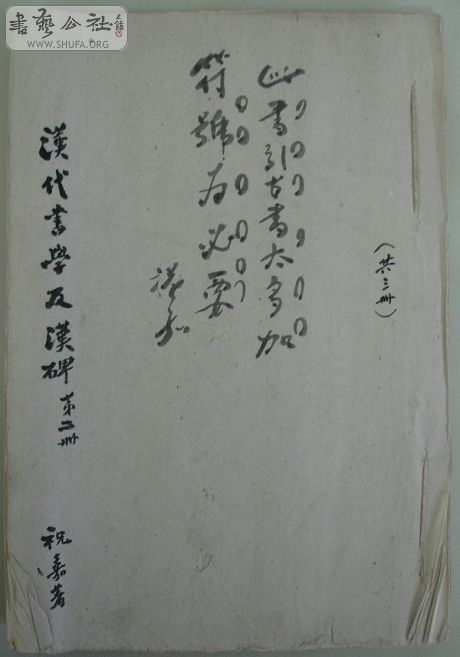 書藝公社
WWW.SHUFA.ORG
（共三冊）
此書引古書太多加
符號为必要
漢代書學及漢碑 第二冊 祝嘉著